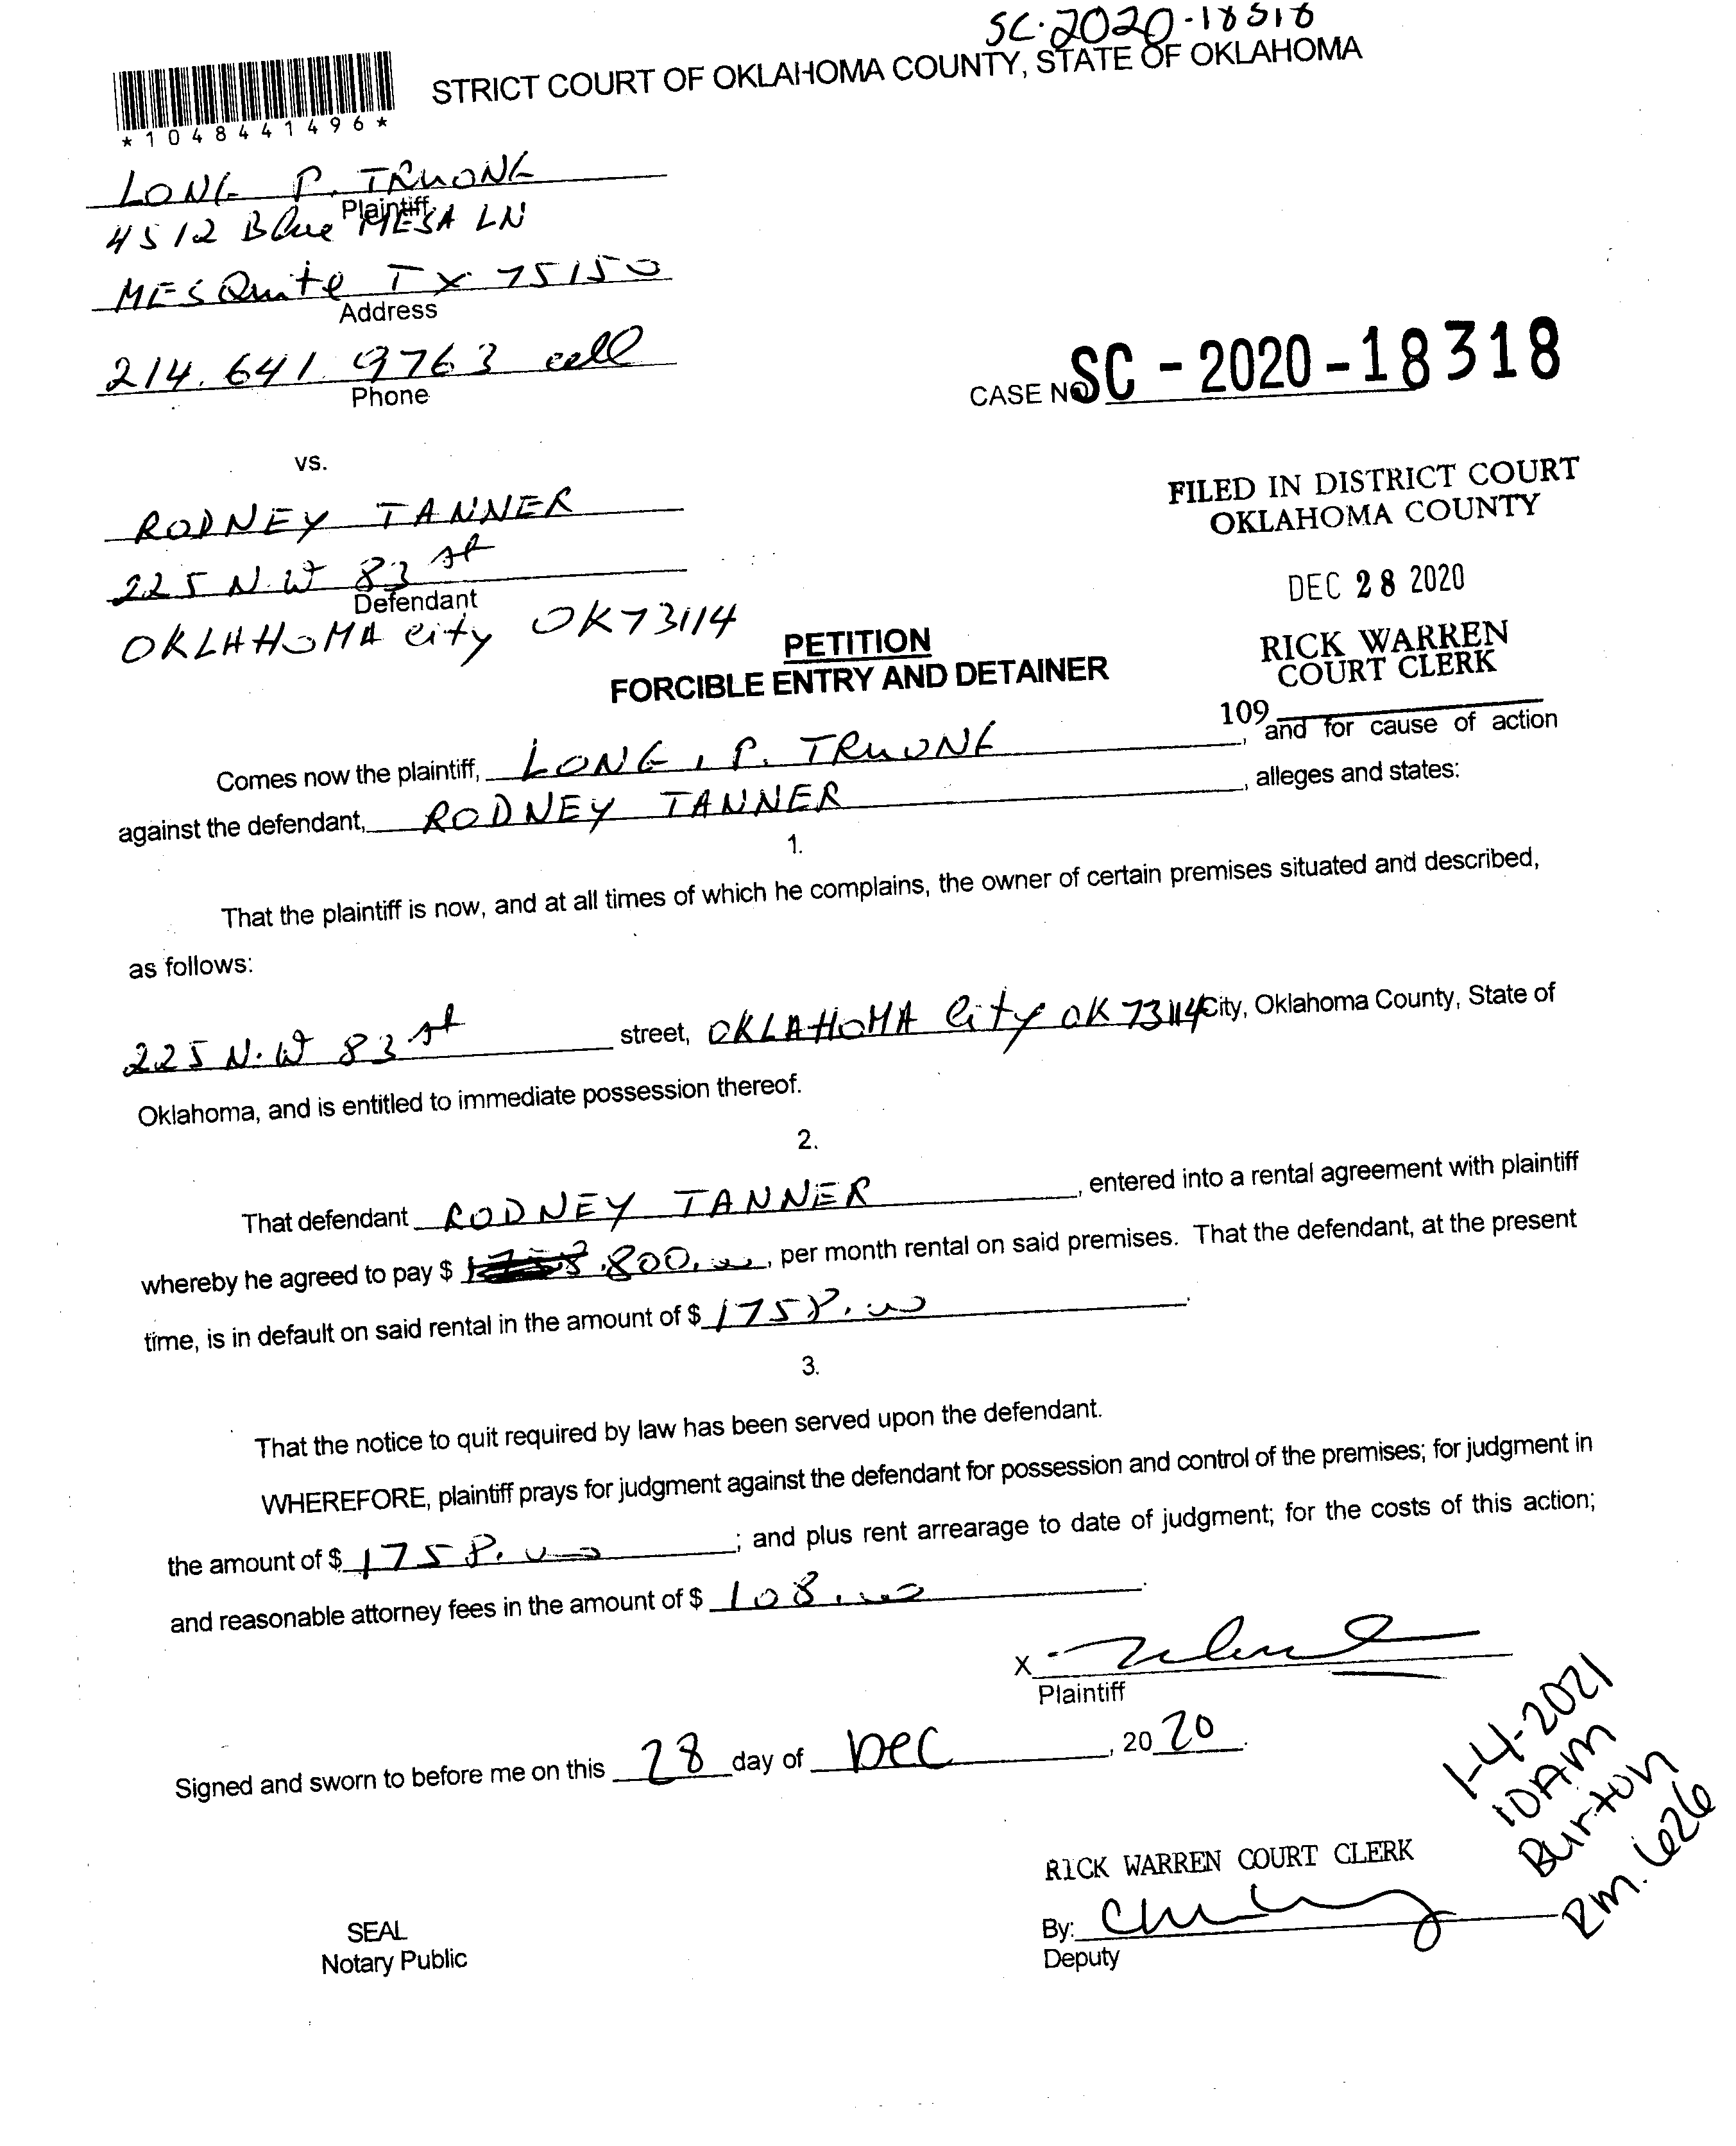 SC-2020-18318
STRICT COURT OF OKLAHOMA COUNTY, STATE OF OKLAHOMA
*1048441496*
LONG P. TRUONG
Plaintiff
4512 Blue MESA LN
MESQuite TX 75150
Address
214.641.9763 cell
Phone
CASE NO SC-2020-18318
vs.
FILED IN DISTRICT COURT
OKLAHOMA COUNTY
RODNEY TANNER
225 N.W 83 st
Defendant
DEC 28 2020
OKLAHOMA City OK 73114
RICK WARREN
COURT CLERK
PETITION
FORCIBLE ENTRY AND DETAINER
109
Comes now the plaintiff, LONG, P. TRUONG, and for cause of action
against the defendant, RODNEY TANNER, alleges and states:
1.
That the plaintiff is now, and at all times of which he complains, the owner of certain premises situated and described,
as follows:
225 N.W 83 st street, OKLAHOMA City OK 73114 City, Oklahoma County, State of
Oklahoma, and is entitled to immediate possession thereof.
2.
That defendant RODNEY TANNER, entered into a rental agreement with plaintiff
whereby he agreed to pay $ 800.00, per month rental on said premises. That the defendant, at the present
time, is in default on said rental in the amount of $ 1758.00.
3.
That the notice to quit required by law has been served upon the defendant.
WHEREFORE, plaintiff prays for judgment against the defendant for possession and control of the premises; for judgment in
the amount of $ 1758.00; and plus rent arrearage to date of judgment; for the costs of this action;
and reasonable attorney fees in the amount of $ 108.00.
X
Plaintiff
Signed and sworn to before me on this 28 day of Dec, 2020.
1-4-2021
10AM
Burton
Rm. 626
RICK WARREN COURT CLERK
By:
Deputy
SEAL
Notary Public